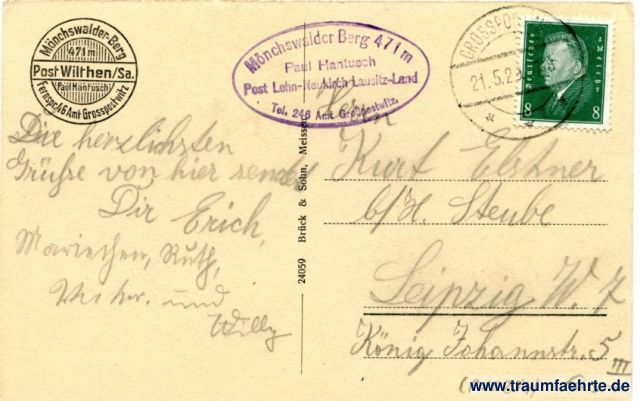 Mönchswalder-Berg
471m
Post Wilthen/Sa.
Paul Hantusch
Fernspr. 46 Amt Grosspostwitz
Mönchswalder Berg 471 m
Paul Hantusch
Post Lehn-Neukirch Lausitz-Land
Tel. 246 Amt Grosspostwitz.
21.5.2
Deutsches Reich
8 8
Die herzlichsten
Grüße von hier sendet
Dir Erich,
Mariechen, Ruth,
und
Willy
24059 Brück & Sohn, Meissen
Herrn
Kurt Elstner
b/H. Steube
Leipzig W. 7
König Johannstr. 5 III
www.traumfaehrte.de